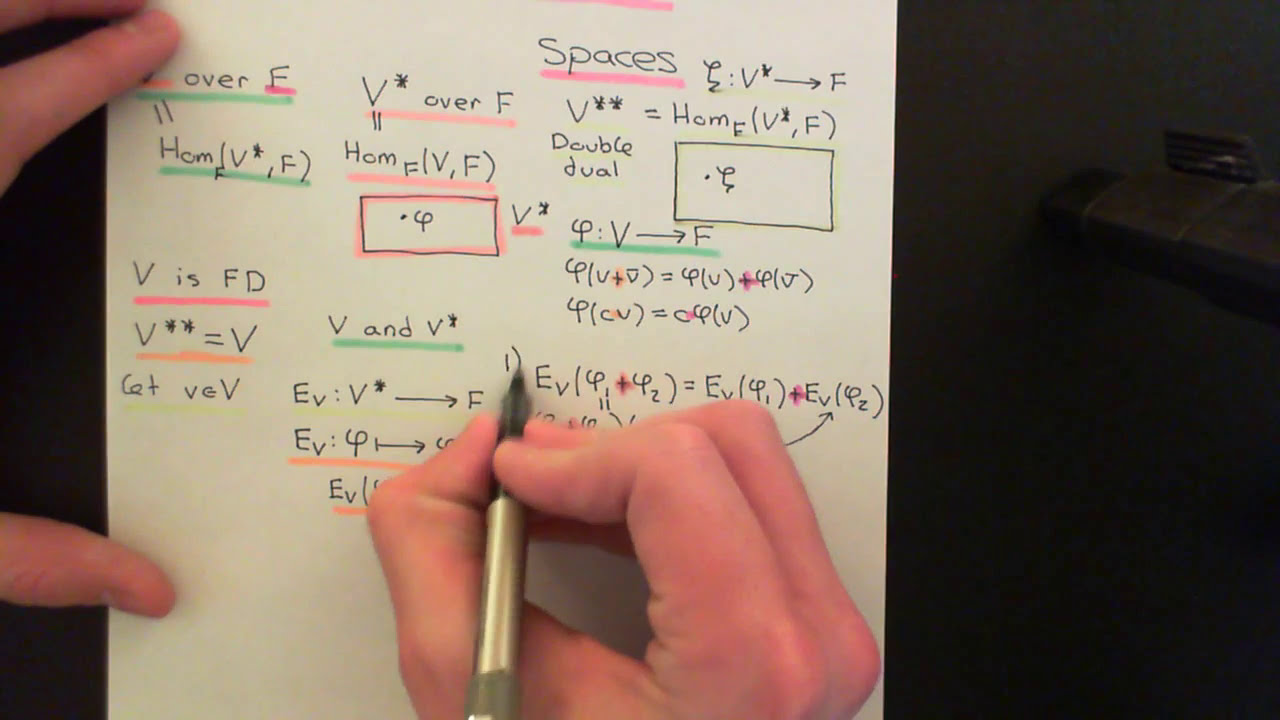 Spaces
over F
||
Hom_F(V*, F)
V* over F
||
Hom_F(V, F)
· φ
V*
ξ : V* ⟶ F
V** = Hom_F(V*, F)
Double
dual
· ξ
φ : V ⟶ F
φ(v+v̄) = φ(v)+φ(v̄)
φ(cv) = cφ(v)
V is FD
V** = V
V and V*
Let v∈V
E_v : V* ⟶ F
E_v : φ ⟼
E_v(
1)
E_v(φ₁+φ₂) = E_v(φ₁)+E_v(φ₂)
||